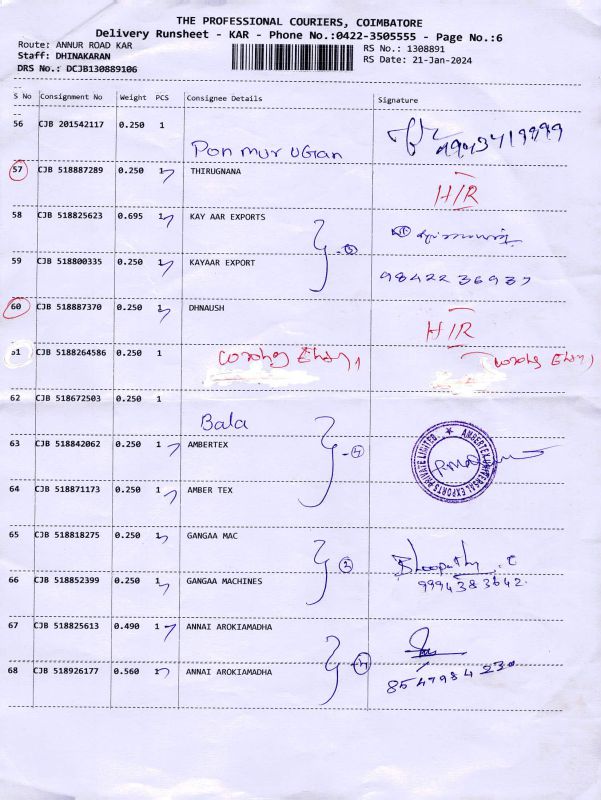 THE PROFESSIONAL COURIERS, COIMBATORE
Delivery Runsheet - KAR - Phone No.:0422-3505555 - Page No.:6
Route: ANNUR ROAD KAR
RS No.: 1308891
Staff: DHINAKARAN
RS Date: 21-Jan-2024
DRS No.: DCJB130889106
S No Consignment No Weight PCS Consignee Details Signature
56 CJB 201542117 0.250 1
Pon mur UGan
57 CJB 518887289 0.250 1 THIRUGNANA H/R
58 CJB 518825623 0.695 1 KAY AAR EXPORTS
59 CJB 518800335 0.250 1 KAYAAR EXPORT 9842236937
60 CJB 518887370 0.250 1 DHNAUSH H/R
61 CJB 5188264586 0.250 1
62 CJB 518672503 0.250 1
Bala
63 CJB 518842062 0.250 1 AMBERTEX
AMBERTEX UNIVERSAL EXPORTS PRIVATE LIMITED
64 CJB 518871173 0.250 1 AMBER TEX
65 CJB 518818275 0.250 1 GANGAA MAC Bhoopathy . C
66 CJB 518852399 0.250 1 GANGAA MACHINES 9994383642
67 CJB 518825613 0.490 1 ANNAI AROKIAMADHA
68 CJB 518926177 0.560 1 ANNAI AROKIAMADHA 8547984230